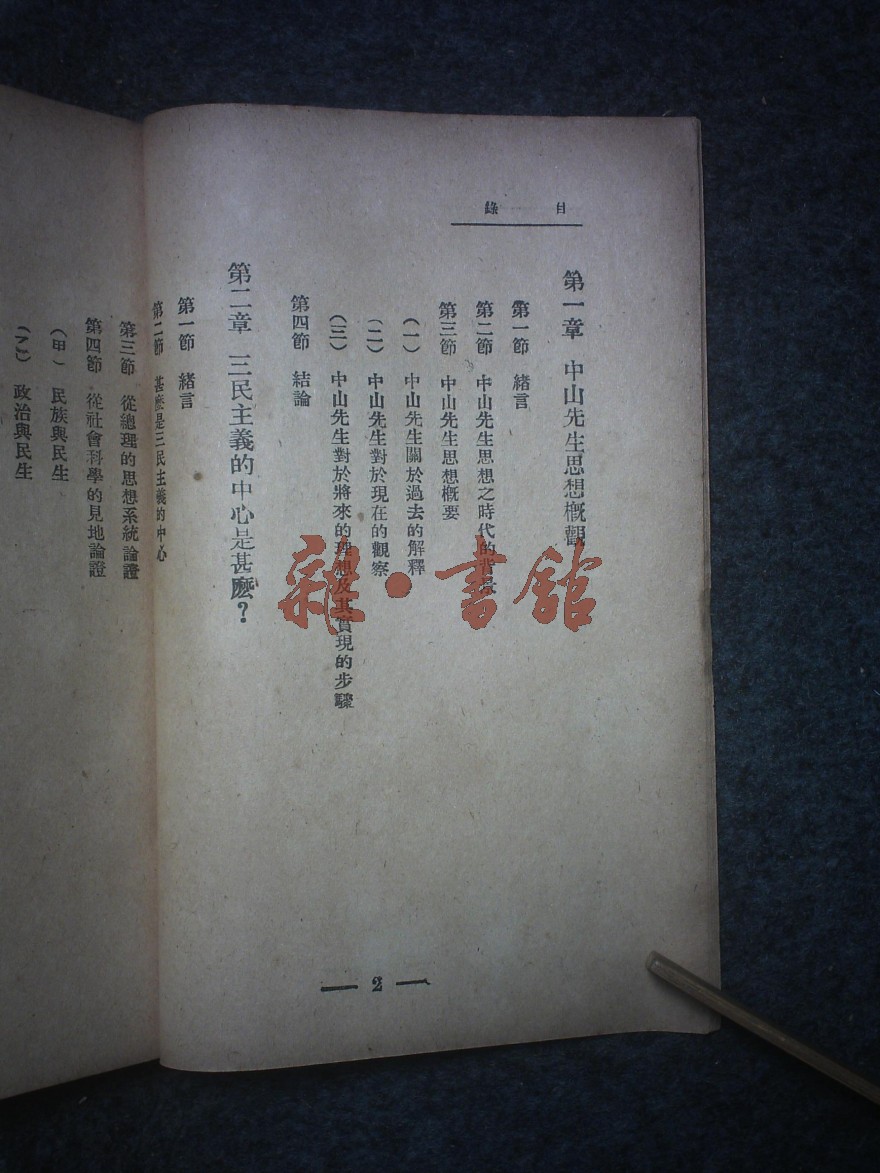 目錄
第一章 中山先生思想概觀
第一節 緒言
第二節 中山先生思想之時代的背景
第三節 中山先生思想概要
(一) 中山先生關於過去的解釋
(二) 中山先生對於現在的觀察
(三) 中山先生對於將來的理想及其實現的步驟
第四節 結論
第二章 三民主義的中心是甚麽?
第一節 緒言
第二節 甚麽是三民主義的中心
第三節 從總理的思想系統論證
第四節 從社會科學的見地論證
(甲) 民族與民生
(乙) 政治與民生
— 2 —
雜·書館